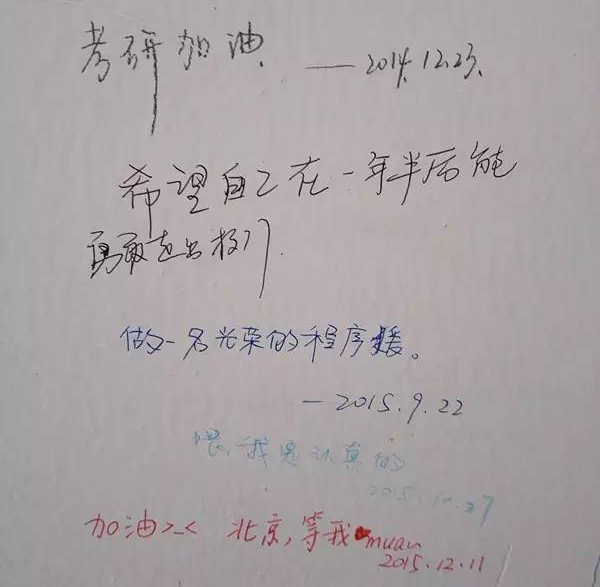 考研加油 ——2014.12.23.
希望自己在一年半后能
勇敢走出校门.
做一名光荣的程序媛。
—2015.9.22
嘿,我是认真的
2015.10.27
加油>_< 北京,等我 muan
2015.12.11